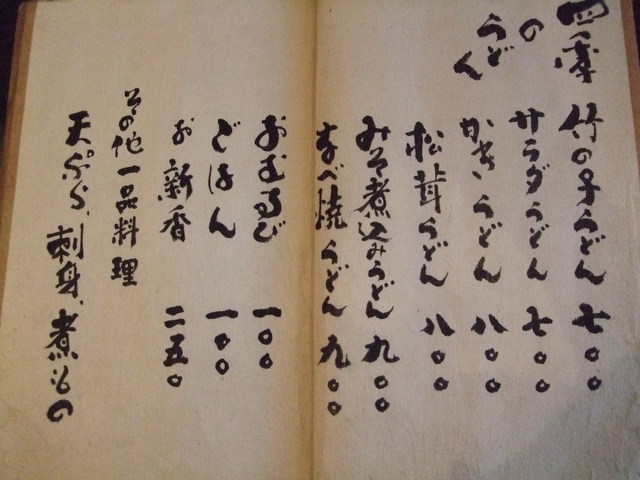 四季
の
うどん
竹の子うどん 七〇〇
サラダうどん 七〇〇
かきうどん 八〇〇
松茸うどん 八〇〇
みそ煮込みうどん 九〇〇
なべ焼うどん 九〇〇
おむすび 一〇〇
ごはん 一〇〇
お新香 二五〇
その他一品料理
天ぷら、刺身、煮もの